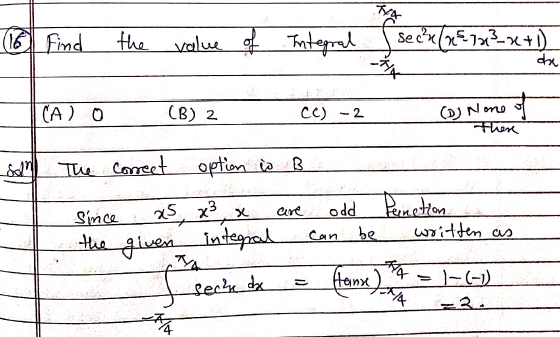 (16) Find the value of Integral ∫_{-π/4}^{π/4} sec²x (x⁵-7x³-x+1) dx
(A) 0 (B) 2 (C) -2 (D) None of
them
Solⁿ The correct option is B
Since x⁵, x³, x are odd function
the given integral can be written as
∫_{-π/4}^{π/4} sec²x dx = (tanx)_{-π/4}^{π/4} = 1-(-1)
= 2.